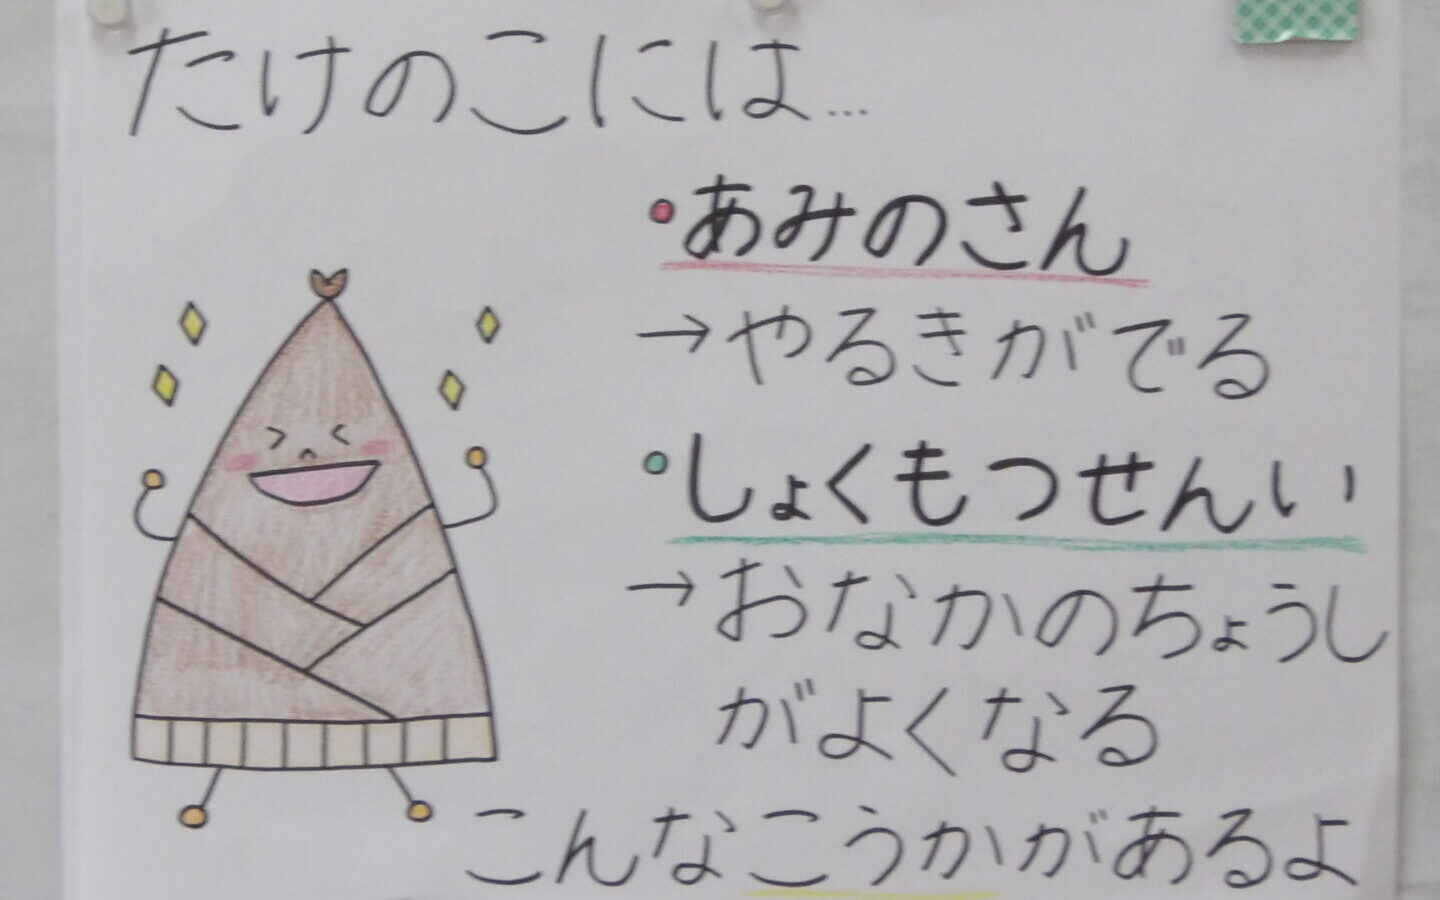 たけのこには…
・あみのさん
→やるきがでる
・しょくもつせんい
→おなかのちょうし
がよくなる
こんなこうかがあるよ